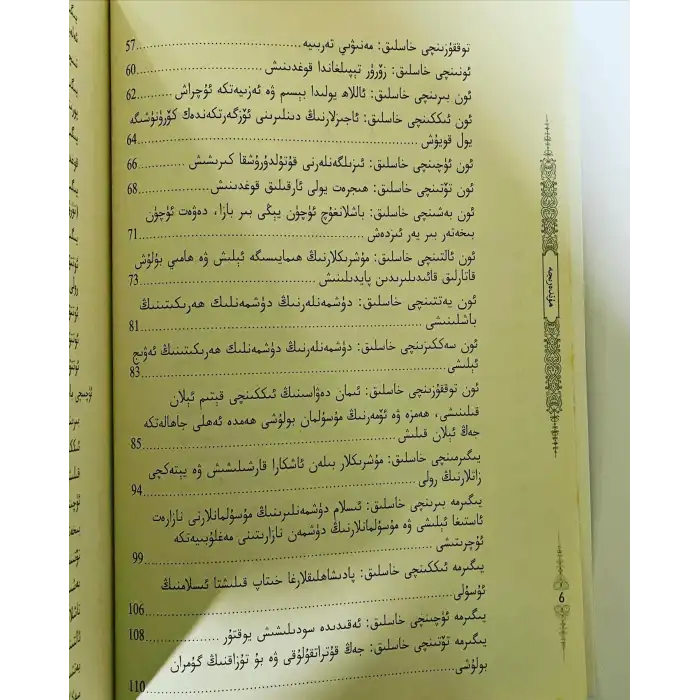 توققۇزىنچى خاسلىق: مەنىۋىي تەربىيە ........ 57
ئونىنچى خاسلىق: زۆرۈر تېپىلغاندا قوغدىنىش ........ 60
ئون بىرىنچى خاسلىق: ئاللاھ يولىدا بېسىم ۋە ئەزىيەتكە ئۇچراش ........ 62
ئون ئىككىنچى خاسلىق: ئاجىزلارنىڭ دىنلىرىنى ئۆزگەرتكەندەك كۆرۈنۈشىگە
يول قويۇش ........ 64
ئون ئۈچىنچى خاسلىق: ئىزىلگەنلەرنى قۇتۇلدۇرۇشقا كىرىشىش ........ 66
ئون تۆتىنچى خاسلىق: ھىجرەت يولى ئارقىلىق قوغدىنىش ........ 68
ئون بەشىنچى خاسلىق: باشلانغۇچ ئۈچۈن يېڭى بىر بازا، دەۋەت ئۈچۈن
بىخەتەر بىر يەر ئىزدەش ........ 71
ئون ئالتىنچى خاسلىق: مۇشرىكلارنىڭ ھىمايىسىگە ئېلىش ۋە ھامىي بۇلۇش
قاتارلىق قائىدىلىرىدىن پايدىلىنىش ........ 73
ئون يەتتىنچى خاسلىق: دۈشمەنلەرنىڭ دۈشمەنلىك ھەرىكىتىنىڭ
باشلىنىشى ........ 81
ئون سەككىزىنچى خاسلىق: دۈشمەنلەرنىڭ دۈشمەنلىك ھەرىكىتىنىڭ ئەۋىج
ئېلىشى ........ 83
ئون توققۇزىنچى خاسلىق: ئىمان دەۋاسىنىڭ ئىككىنچى قېتىم ئېلان
قىلىنىشى، ھەمزە ۋە ئۆمەرنىڭ مۇسۇلمان بولۇشى ھەمدە ئەھلى جاھالەتكە
جەڭ ئېلان قىلىش ........ 85
يىگىرمىنچى خاسلىق: مۇشرىكلار بىلەن ئاشكارا قارشىلىشىش ۋە يېتەكچى
زاتلارنىڭ رولى ........ 94
يىگىرمە بىرىنچى خاسلىق: ئىسلام دۈشمەنلىرىنىڭ مۇسۇلمانلارنى نازارەت
ئاستىغا ئېلىشى ۋە مۇسۇلمانلارنىڭ دۈشمەن نازارىتىنى مەغلۇبىيەتكە
ئۇچرىتىشى ........ 99
يىگىرمە ئىككىنچى خاسلىق: پادىشاھلىقلارغا خىتاپ قىلىشتا ئىسلامنىڭ
ئۇسۇلى ........ 106
يىگىرمە ئۈچىنچى خاسلىق: ئەقىدىدە سودىلىشىش يوقتۇر ........ 108
يىگىرمە تۆتىنچى خاسلىق: جەڭ قۇتراتقۇلۇقى ۋە بۇ تۇزاقنىڭ گۇمران
بولۇشى ........ 110
مۇندەرىجە
6